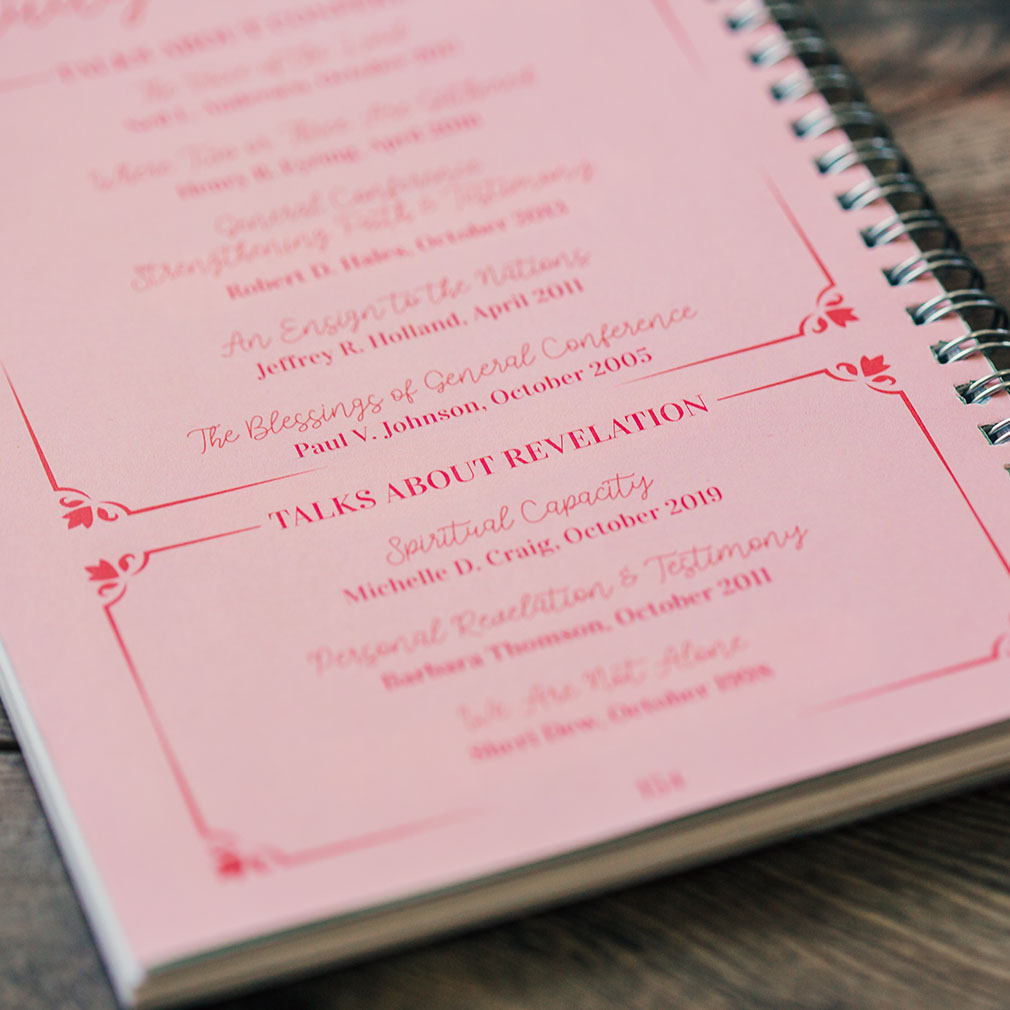 TALKS ABOUT
The Voice of the Lord
Neil L. Andersen, October 2017
Where Two or Three Are Gathered
Henry B. Eyring, April 2016
General Conference
Strengthening Faith & Testimony
Robert D. Hales, October 2013
An Ensign to the Nations
Jeffrey R. Holland, April 2011
The Blessings of General Conference
Paul V. Johnson, October 2005
TALKS ABOUT REVELATION
Spiritual Capacity
Michelle D. Craig, October 2019
Personal Revelation & Testimony
Barbara Thomson, October 2011
We Are Not Alone
Sheri Dew, October 1998